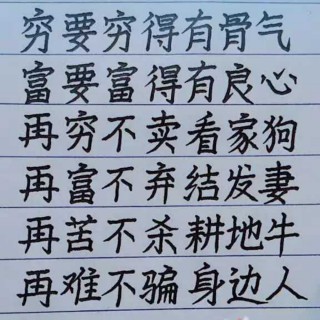 穷要穷得有骨气
富要富得有良心
再穷不卖看家狗
再富不弃结发妻
再苦不杀耕地牛
再难不骗身边人